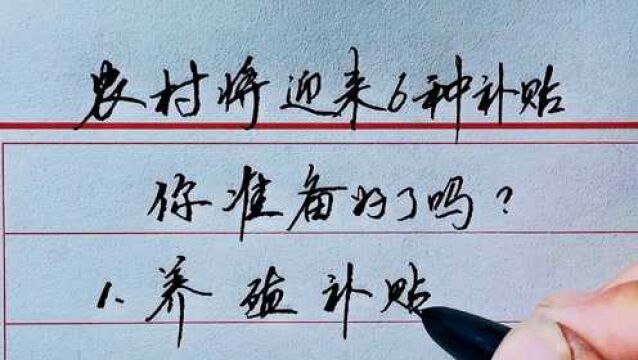 农村将迎来6种补贴
你准备好了吗？
1.养殖补贴